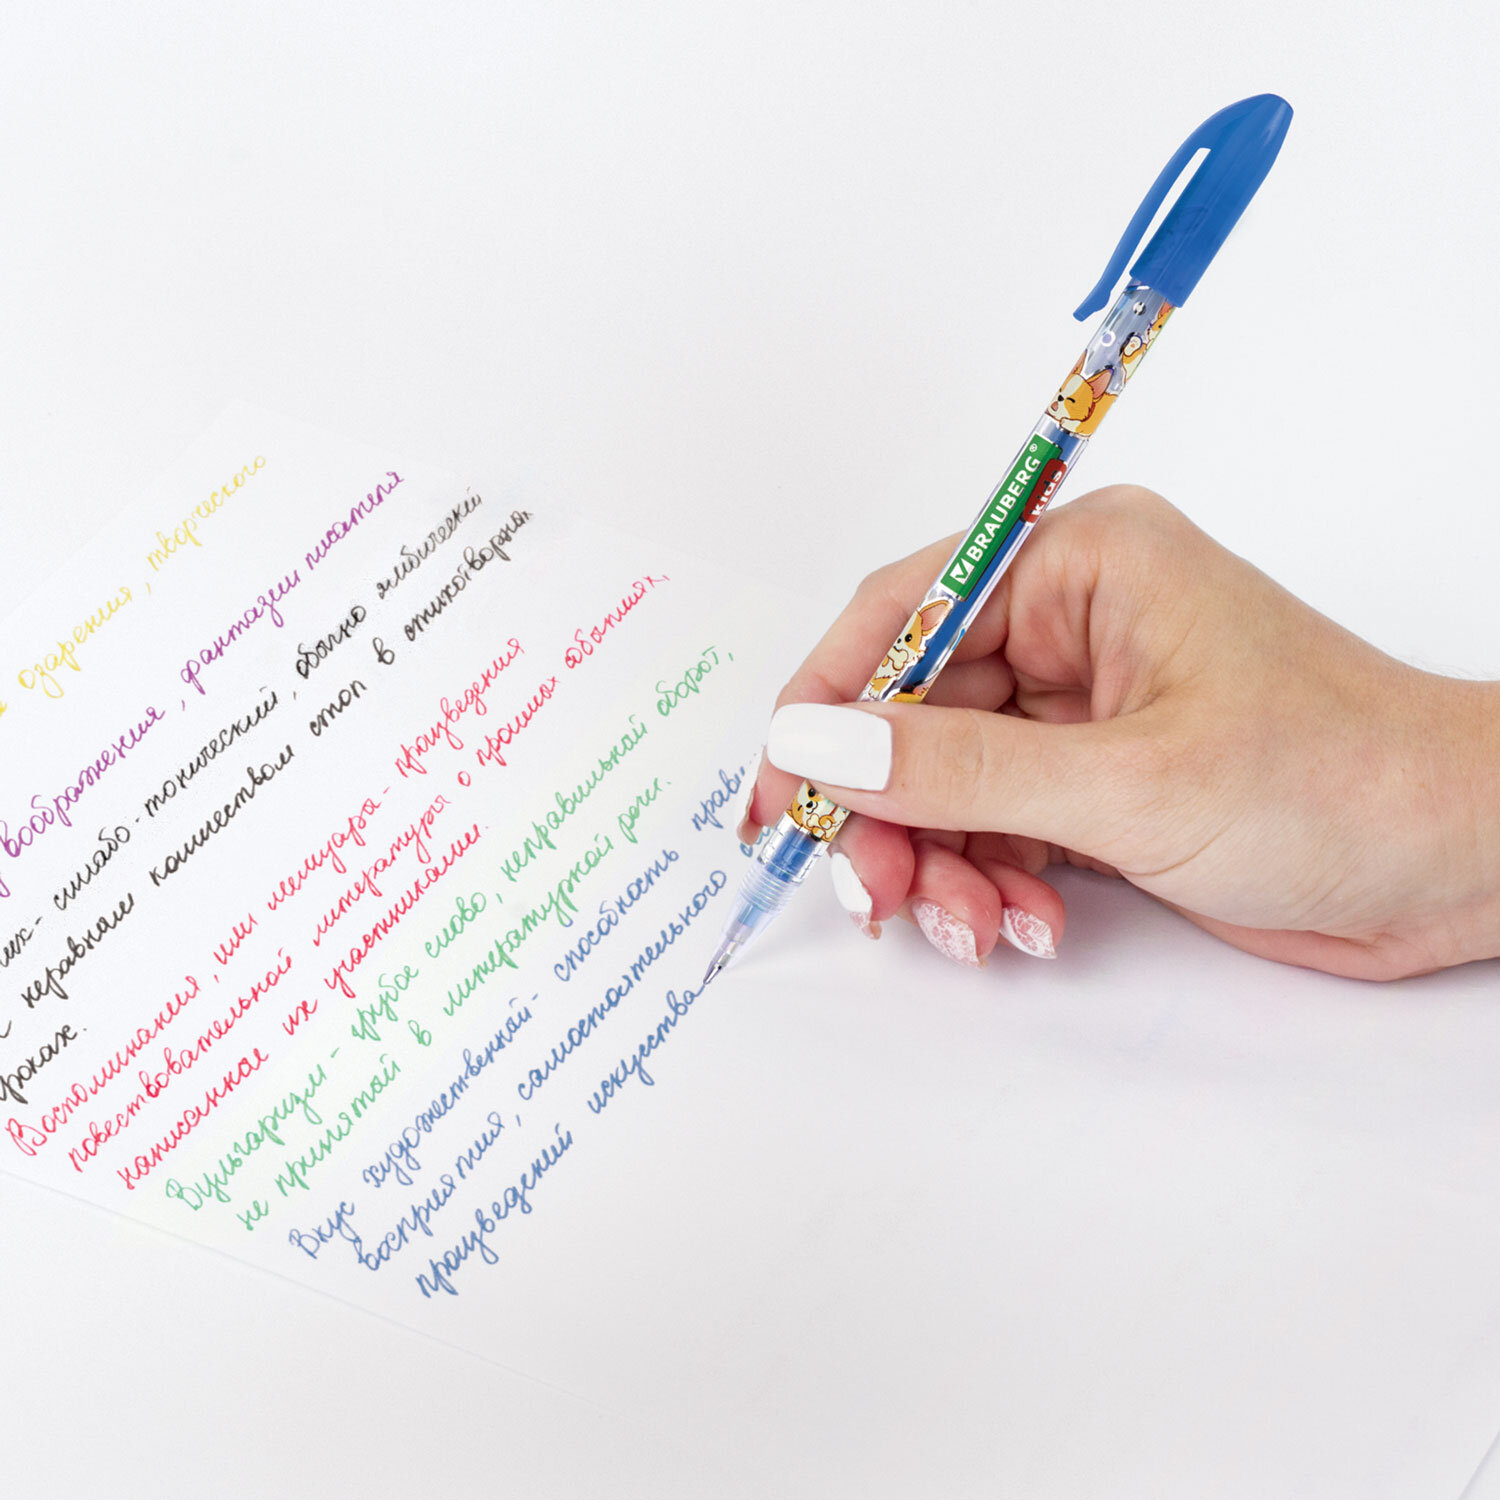 озарения, творческого
воображения, фантазии писателя
силлабо-тонический, обычно ямбический
неравным количеством стоп в стихотворных
строках.
Воспоминания, или мемуары - произведения
повествовательной литературы о прошлых событиях,
написанное их участниками.
Вульгаризм - грубое слово, неправильный оборот,
не принятой в литературной речи.
Вкус художественный - способность прави
восприятия, самостоятельного
произведений искусства
BRAUBERG®
Kids